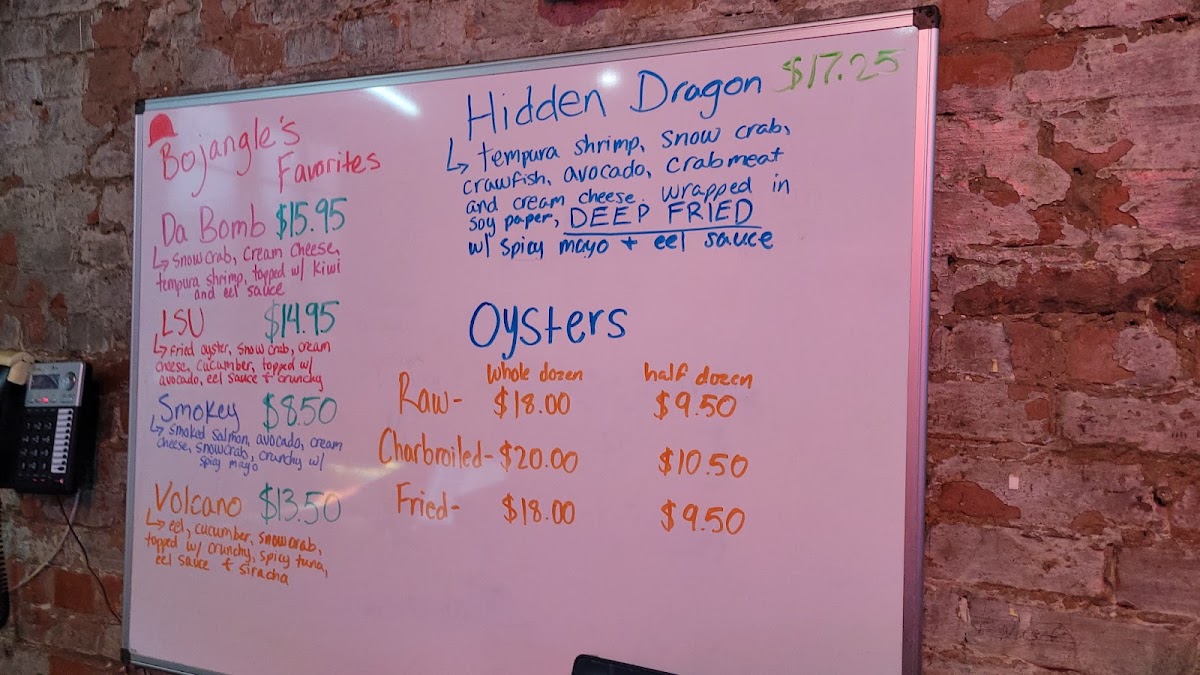 Bojangle's
Favorites
Da Bomb $15.95
↳ snowcrab, cream cheese,
tempura shrimp, topped w/ kiwi
and eel sauce
LSU $14.95
↳ fried oyster, snow crab, cream
cheese, cucumber, topped w/
avocado, eel sauce + crunchy
Smokey $8.50
↳ smoked salmon, avocado, cream
cheese, snowcrab, crunchy w/
spicy mayo
Volcano $13.50
↳ eel, cucumber, snowcrab,
topped w/ crunchy, spicy tuna,
eel sauce + siracha
Hidden Dragon $17.25
↳ tempura shrimp, snow crab,
crawfish, avocado, crabmeat
and cream cheese. wrapped in
soy paper, DEEP FRIED
w/ spicy mayo + eel sauce
Oysters
whole dozen half dozen
Raw- $18.00 $9.50
Charbroiled- $20.00 $10.50
Fried- $18.00 $9.50